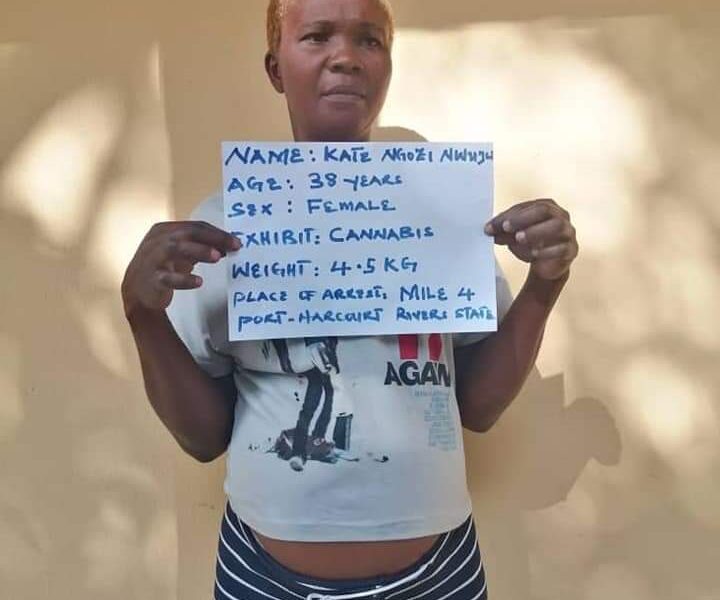 NAME: KATE NGOZI
AGE: 38 YEARS
SEX: FEMALE
EXHIBIT: CANNABIS
WEIGHT: 4.5 KG
PLACE OF ARREST: MILE 4
PORT-HARCOURT RIVERS STATE
AGAIN